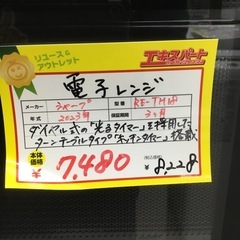 リユース&
アウトレット
エキスパート
電子レンジ
メーカー シャープ 型番 RE-TM18
年式 2023年 保証期間 3ヶ月
ダイヤル式の「光るタイマー」を採用した
ターンテーブルタイプ「キッチンタイマー」搭載
本体価格 7,480 税込価格 8,228